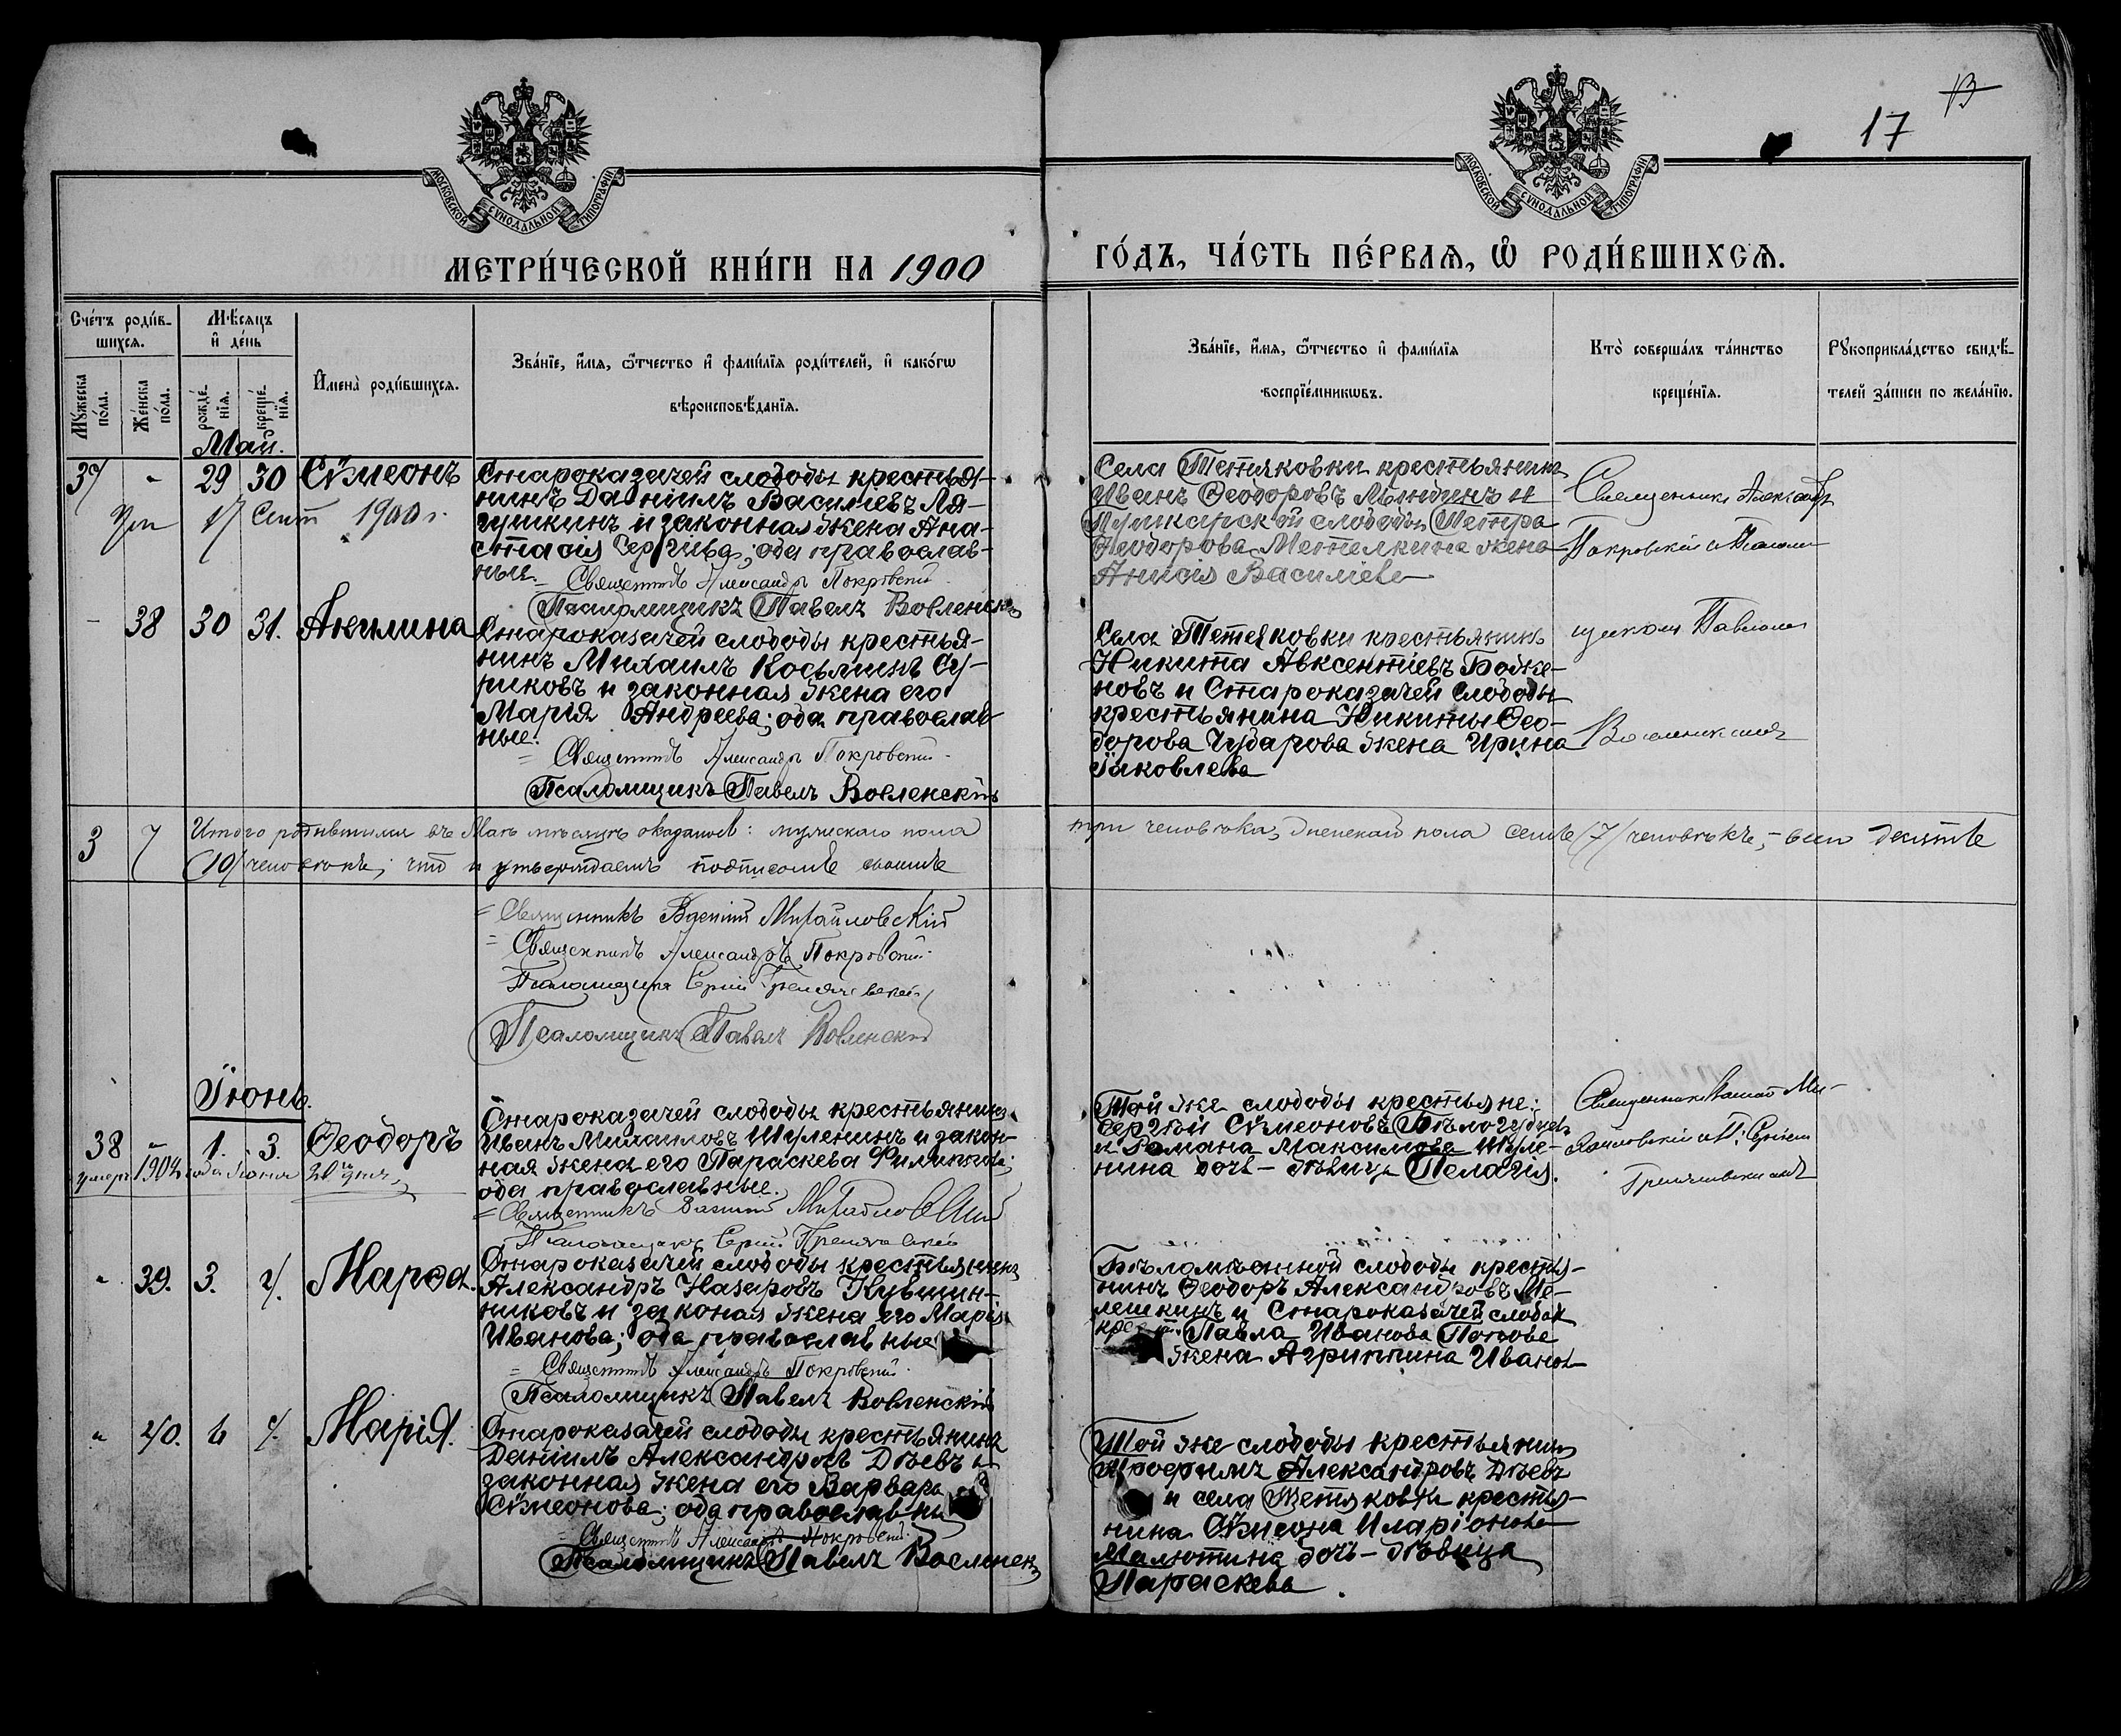 13
17
МОСКОВСКОЙ СѴНОДАЛЬНОЙ ТИПОГРАФІИ
МОСКОВСКОЙ СѴНОДАЛЬНОЙ ТИПОГРАФІИ
МЕТРИ́ЧЕСКОЙ КНИ́ГИ НА 1900
ГО́ДЪ, ЧА́СТЬ ПЕ́РВАЯ, Ѽ РОДИ́ВШИХСЯ.
Сче́тъ роди́в-
шихся.
Мꙋ́жеска по́ла.
Же́нска по́ла.
Мѣ́сяцъ
и де́нь
рожде́-
нїя.
креще́-
нїя.
Имена̀ роди́вшихся.
Зва́нїе, и́мя, ѻ́тчество и фами́лїя роди́телей, и како́гѡ
вѣроисповѣ́данїя.
Зва́нїе, и́мя, ѻ́тчество и фами́лїя
воспрїе́мникѡвъ.
Кто̀ соверша́лъ та́инство
креще́нїя.
Рꙋкоприкла́дство свидѣ́-
телей за́писи по жела́нїю.
Май.
37 - 29 30 Сѵмеонъ
17 Сент 1900 г.
Староказачей слободы крестья-
нинъ Даніилъ Василіевъ Ля-
гушкинъ и законная жена Ана-
стасія Сергіева; оба православ-
ные.
Священникъ Александръ Покровскій
Псаломщикъ Павелъ
Села Тетяковки крестьянинъ
Иванъ Ѳеодоровъ и
Пушкарской слободы Петра
Ѳеодорова Метелкина жена
Анисія Василіева
Священникъ Александръ
Покровскій и Псалом-
щикъ Павелъ
- 38 30 31. Акилина
Староказачей слободы крестья-
нинъ Михаилъ Косьминъ Су-
риковъ и законная жена его
Марія Андреева; оба православ-
ные.
Священникъ Александръ Покровскій
Псаломщикъ Павелъ
Села Тетяковки крестьянинъ
Никита Авксентіевъ Боже-
новъ и Староказачей слободы
крестьянина Никиты Ѳео-
дорова Чударова жена Ирина
Іаковлева
3 7 Итого родившихся въ Маѣ мѣсяцѣ оказалось: мужескаго пола
три человѣка, женскаго пола семь /7/ человѣкъ, - всего десять
/10/ человѣкъ; что и утверждаемъ подписомъ своимъ
Священникъ Михайловскій
Священникъ Александръ Покровскій
Псаломщикъ Сергій
Псаломщикъ Павелъ
Іюнь.
38 - 1. 3. Ѳеодоръ
умеръ 1904 года Іюня 20 дня
Староказачей слободы крестьянинъ
Иванъ Михаиловъ Шуленинъ и закон-
ная жена его Параскева Филиппова;
оба православные.
Священникъ Михайловскій
Псаломщикъ Сергій
Той же слободы крестьяне:
Сергій Сѵмеоновъ
и Романа Максимова Шуле-
нина дочь - дѣвица Пелагія.
Священникъ Ми-
хайловскій и П. Сергій
39. 3. 4. Марѳа.
Староказачей слободы крестьянинъ
Александръ Назаровъ Кувшин-
никовъ и законая жена его Марія
Иванова; оба православные
Священникъ Александръ Покровскій
Псаломщикъ Павелъ
Бѣломѣстной слободы крестья-
нинъ Ѳеодоръ Александровъ Ме-
лешкинъ и Староказачей слободы
Павла Иванова Попова
жена Агриппина Иванова
40. Марія.
Староказачей слободы крестьянинъ
Даніилъ Александровъ Дѣевъ и
законная жена его Варвара
Сѵмеонова; оба православны
Священникъ Александръ Покровскій
Псаломщикъ Павелъ
Той же слободы крестьянинъ
Трофимъ Александровъ Дѣевъ
и села Тетяковки крестья-
нина Сѵмеона Иларіонова
Малютина дочь - дѣвица
Параскева